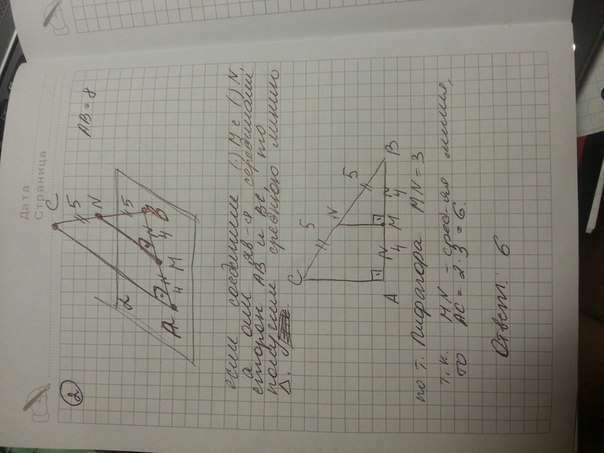 Дата
Страница
2
AB = 8
C
5
N
5
B
4
M
4
A
2
если соединим (·) M с (·) N,
а они яв-я серединами
сторон AB и BC, то
получим среднюю линию
Δ.
C
5
N
5
B
A
4
M
4
по т. Пифагора MN = 3
т.к. MN - средняя линия,
то AC = 2·3 = 6.
Ответ: 6